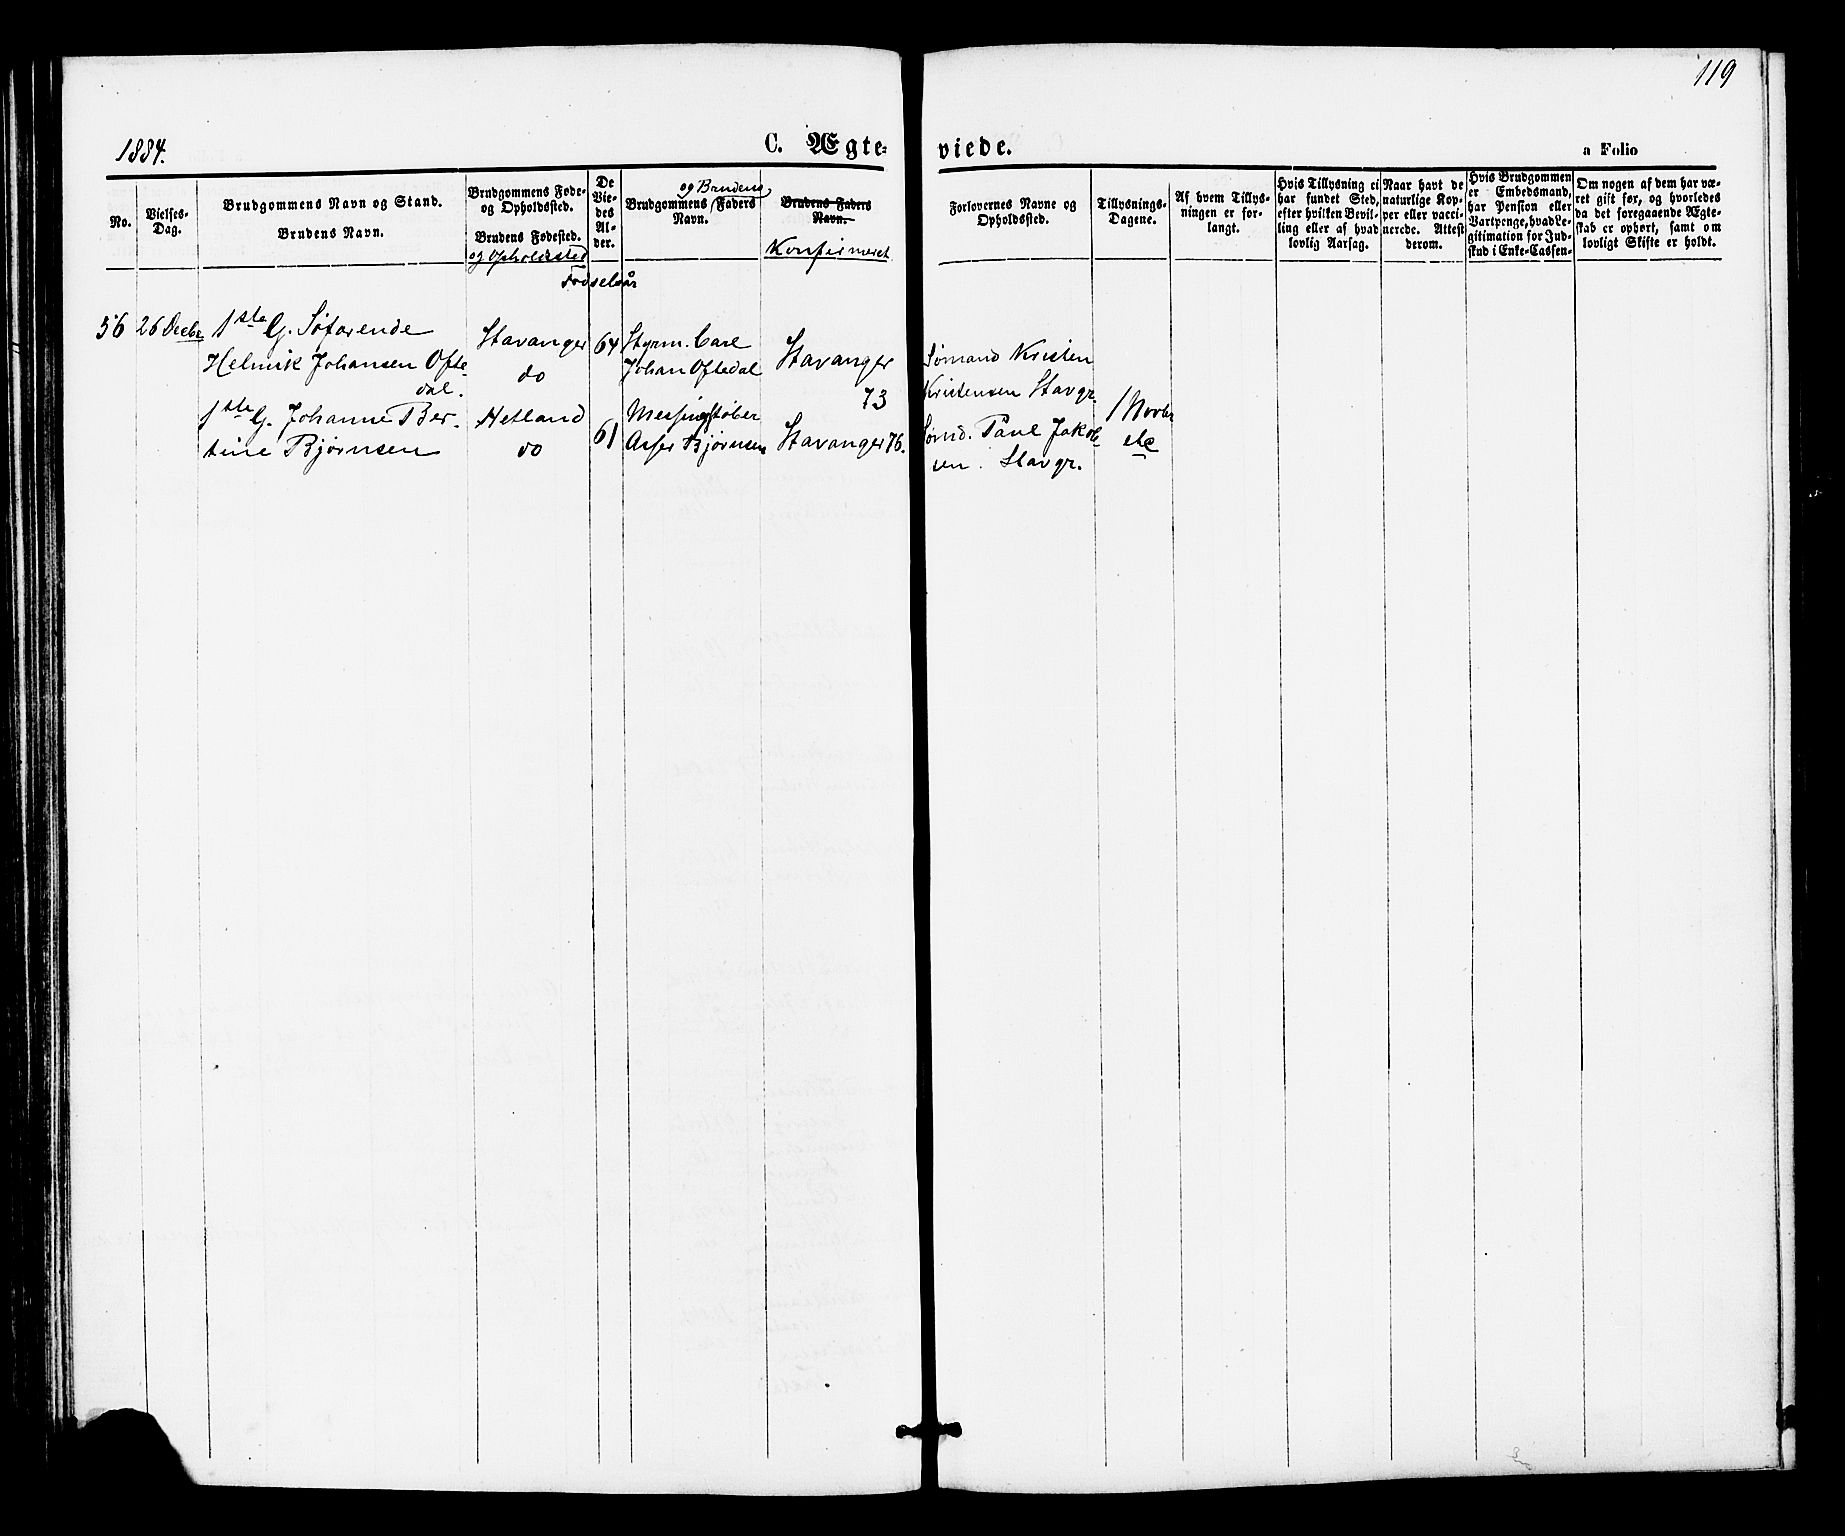 119
1884.
C. Ægte-
viede.
a Folio
No.
Vielses-
Dag.
Brudgommens Navn og Stand.
Brudens Navn.
Brudgommens Føde-
og Opholdssted.
Brudens Fødested.
og Opholdssted
De
Vie-
des
Al-
der.
Fødselsår
og Brudens
Brudgommens Faders
Navn.
Brudens Faders
Navn.
Konfirmeret
Forlovernes Navne og
Opholdssted.
Tillysnings-
Dagene.
Af hvem Tillys-
ningen er for-
langt.
Hvis Tillysning ei
har fundet Sted,
efter hvilken Bevil-
ling eller af hvad
lovlig Aarsag.
Naar havt de
naturlige Kop-
per eller vacci-
nerede. Attest
derom.
Hvis Brudgommen
er Embedsmand,
har Pension eller
Vartpenge, hvad Le-
gitimation for Ind-
skud i Enke-Cassen.
Om nogen af dem har væ-
ret gift før, og hvorledes
da det foregaaende Ægte-
skab er ophørt, samt om
lovligt Skifte er holdt.
56
26 Decbr
1ste G. Søfarende
Helmik Johansen Ofte-
dal.
Stavanger
do
64
Styrm. Carl
Johan Oftedal
Stavanger
73
Sømand Kristen
Kristensen Stavgr.
1ste G. Johanne Ber-
tine Bjørnsen
Hetland
do
61
Messingstøber
Asser Bjørnsen
Stavanger 76.
Sømd. Paul Jakob-
sen. Stavgr.
1 Novbr
etc